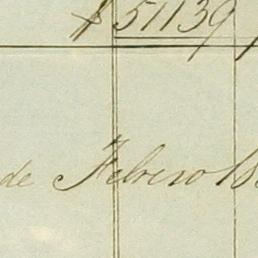 $ 51139
de Febrero 18